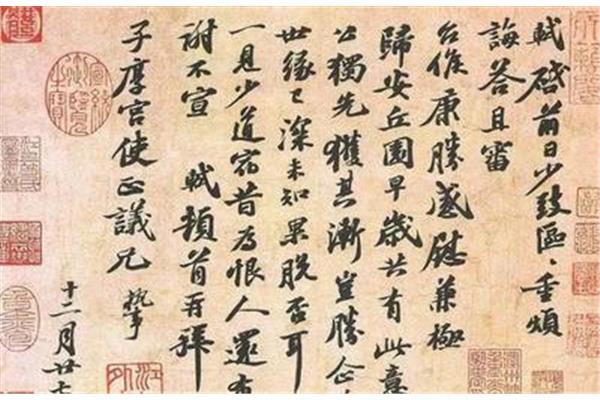 軾啓前日少致區〻重煩
誨答且審
台候康勝感慰兼極
歸安丘園早歲共有此意
公獨先獲其漸豈勝企
世緣已深未知果脫否耳
一見少道宿昔為恨人還
謝不宣 軾頓首再拜
子厚宮使正議兄 執事
十二月廿